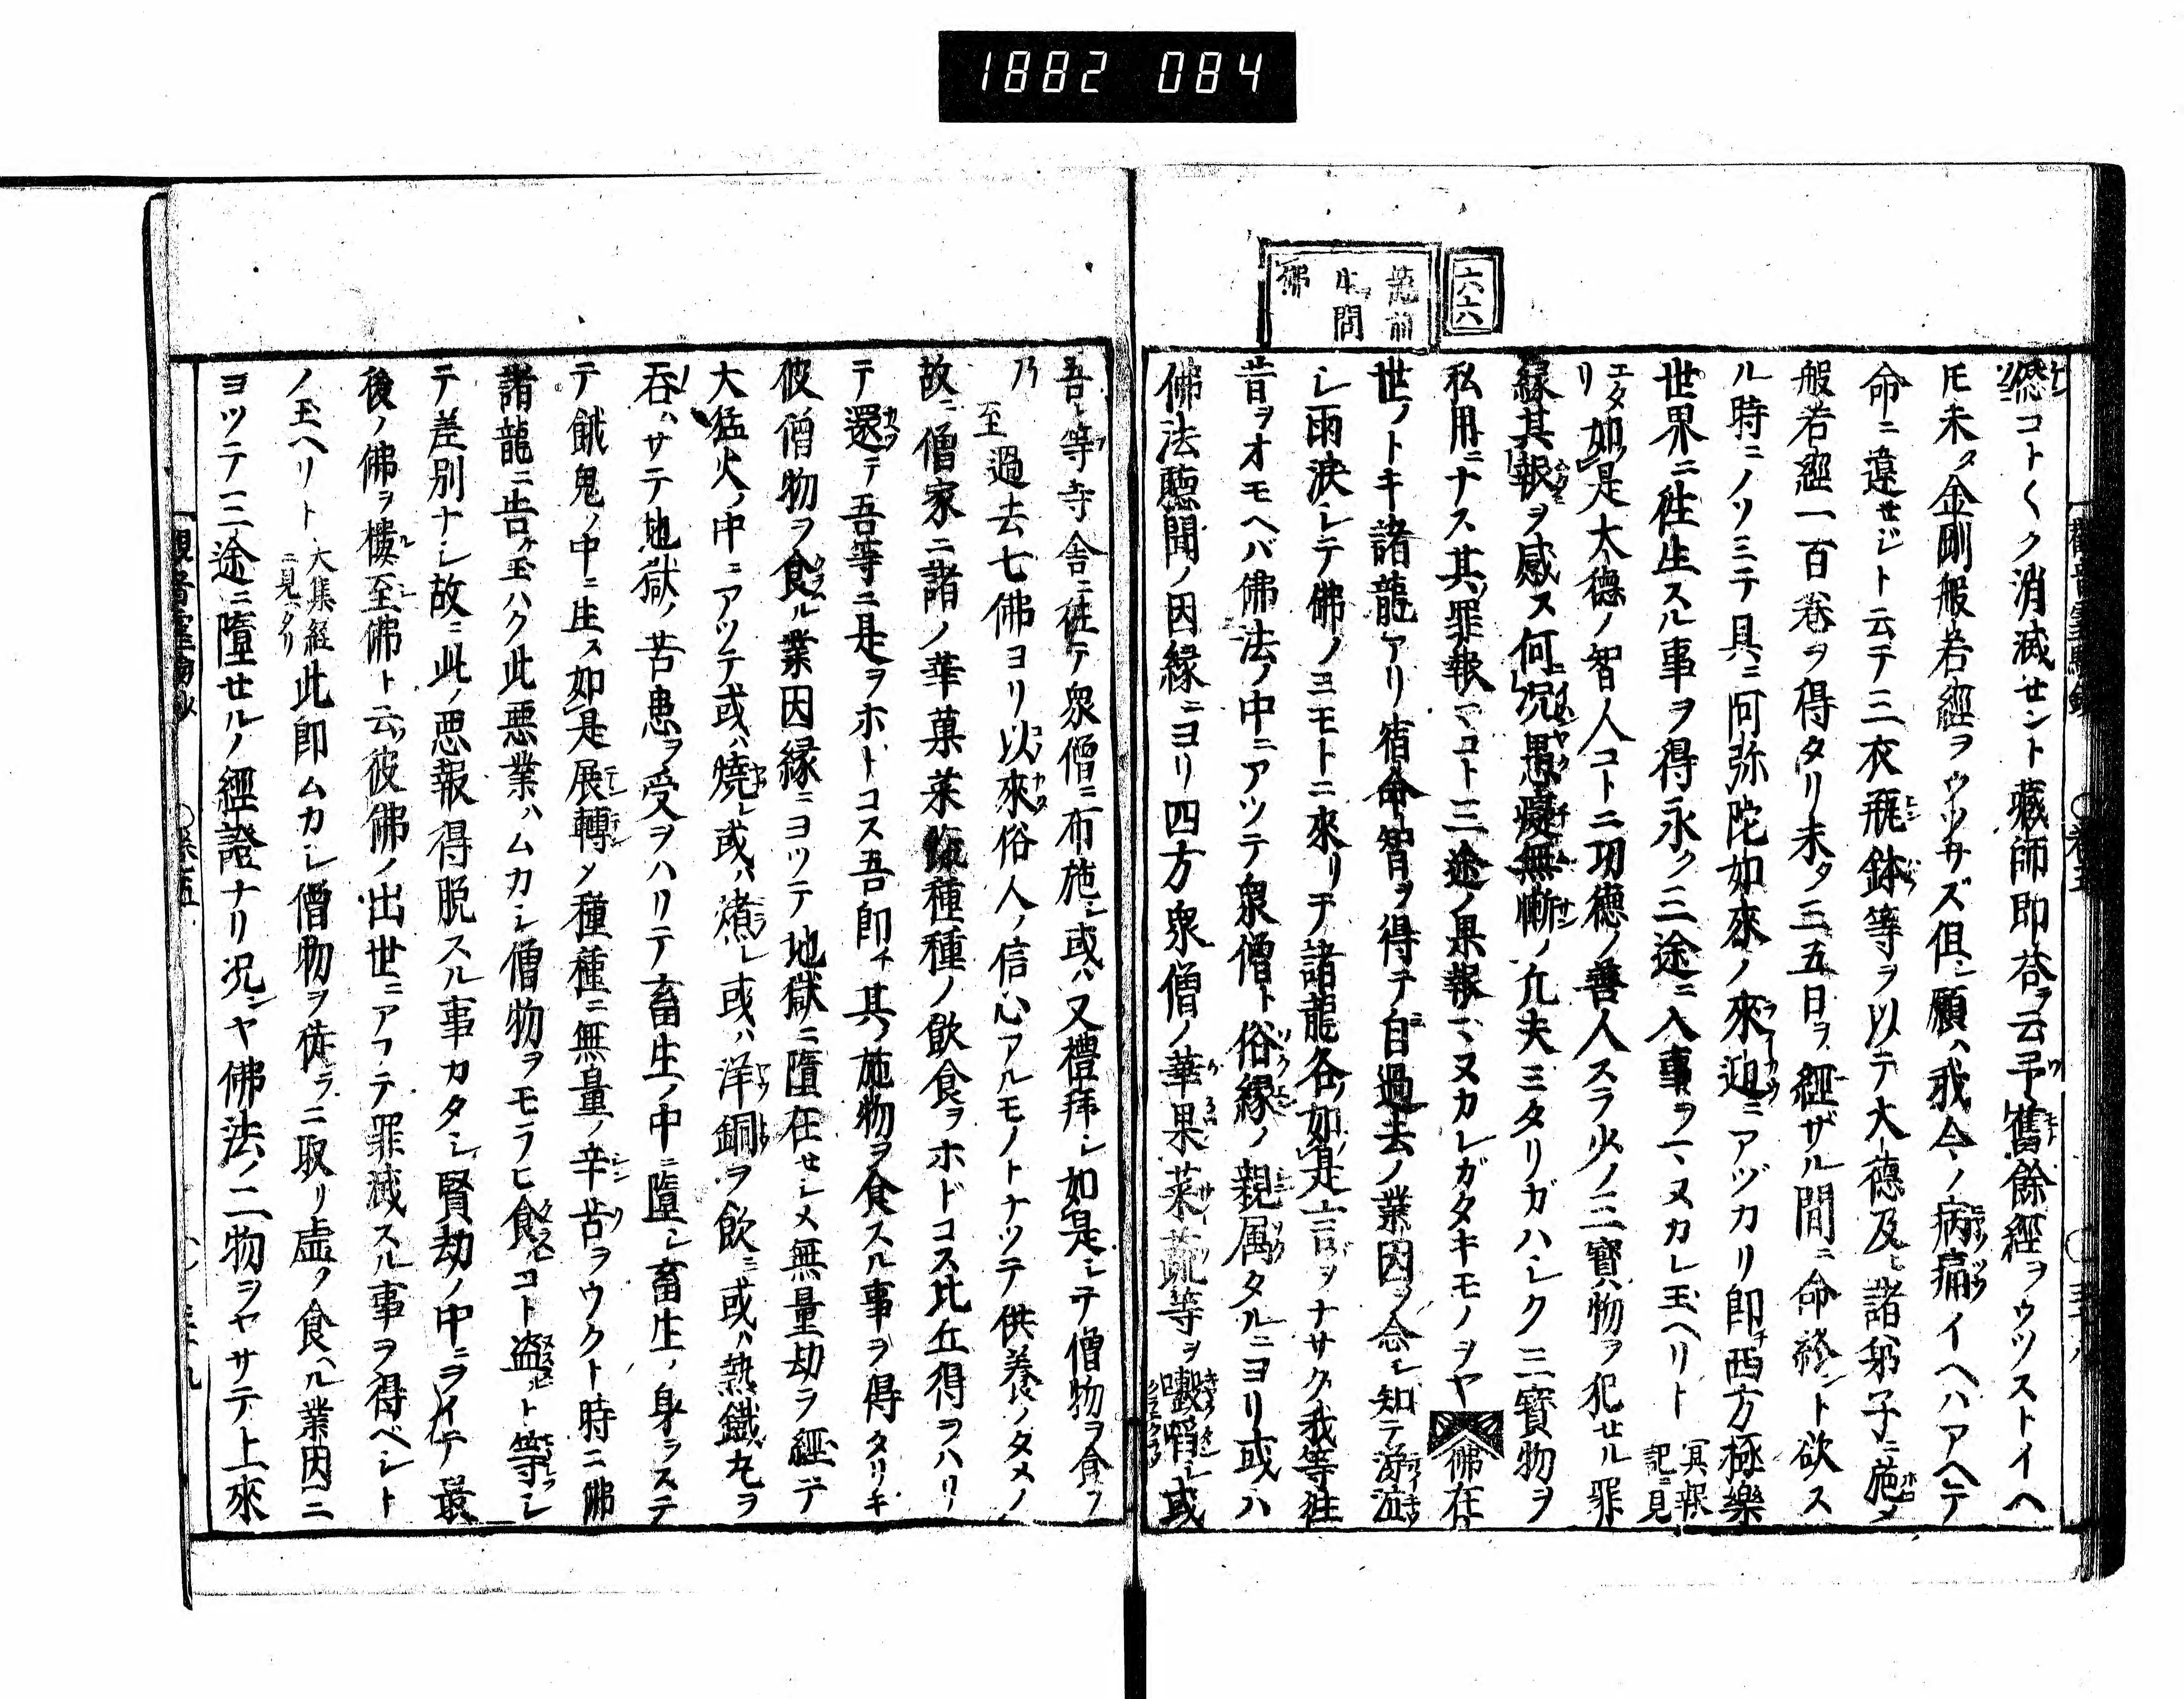 1882 084
六六
龍前
生問
佛
𠎝コト〱ク消滅セント藏師即荅ヲ云予舊餘經ヲウツストイヘ
𪜈未タ金剛般若經ヲウツサズ但シ願ハ我今ノ病痛イヘハアヘテ
命ニ違せジト云テ三衣瓶鉢等ヲ以テ大德及ヒ諸弟子ニ施メ
般若經一百巻ヲ得タリ未タ三五日ヲ經ザル間ニ命終ント欲ス
ル時ニノソミテ具ニ阿弥陀如來ノ來迎ニアヅカリ即チ西方極樂
世界ニ往生スル事ヲ得永ク三途ニ入事ヲマヌカレ玉ヘリト冥報記ニ見
エタリ如是大德ノ智人コトニ功德ノ善人スラ少ノ三寶物ヲ犯せル罪
緣其報ヲ感ス何況愚癡無慚ノ凢夫ミタリガハシク三寶物ヲ
私用ニナス其罪報マコト三途ノ果報マヌカレガタキモノヲヤ佛在
世ノトキ諸龍アリ宿命智ヲ得テ自過去ノ業因ヲ念シ知テ涕泣
シ雨淚シテ佛ノミモトニ來リテ諸龍各如是言ヲナサク我等徃
昔ヲオモヘバ佛法ノ中ニアツテ衆僧ト俗緣ノ親属タルニヨリ或ハ
佛法聽聞ノ因緣ニヨリ四方衆僧ノ華果菜蔬等ヲ噉シ或
吾等寺舎ニ徃テ衆僧ニ布施シ或ハ又禮拜シ如是シテ僧物ヲ食フ
乃至過去七佛ヨリ以來俗人ノ信心アルモノトナツテ供養ノタメノ
故ニ僧家ニ諸ノ華菓菜種種ノ飲食ヲホドコス比丘得ヲハリ
テ還テ吾等ニ是ヲホトコス吾即チ其ノ施物ヲ食スル事ヲ得タリキ
彼僧物ヲ食ル業因緣ニヨツテ地獄ニ墮在せシメ無量劫ヲ經テ
大猛火ノ中ニアツテ或ハ燒レ或ハ煮レ或ハ洋銅ヲ飲ミ或ハ熱鐵丸ヲ
吞ハサテ地獄ノ苦患ヲ受ヲハリテ畜生ノ中ニ墮シ畜生ノ身ヲステ
テ餓鬼ノ中ニ生ス如是展轉メ種種ニ無量ノ辛苦ヲウクト時ニ佛
諸龍ニ告ケ玉ハク此悪業ハムカシ僧物ヲモラヒ食コト盗ト等シ
テ差別ナシ故ニ此ノ悪報得脱スル事カタシ賢劫ノ中ニヲイテ最
後ノ佛ヲ樓至佛ト云彼佛ノ出世ニアフテ罪滅スル事ヲ得ベシト
ノ玉ヘリト大集経ニ見ヘタリ此即ムカシ僧物ヲ徒ラニ取リ虚ク食ヘル業因ニ
ヨツテ三途ニ墮せルノ經證ナリ况ンヤ佛法ノ二物ヲヤサテ上來